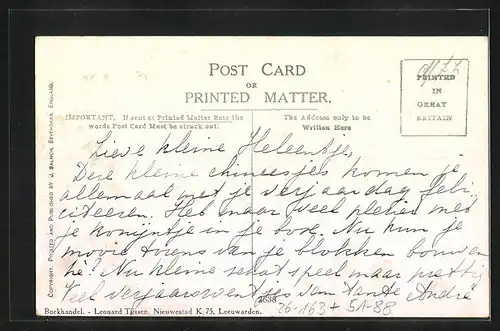 POST CARD
OR
PRINTED MATTER.
PRINTED
IN
GREAT
BRITAIN
IMPORTANT. If sent at Printed Matter Rate the
words Post Card Must be struck out.
The Address only to be
Written Here
Lieve kleine Heleentje,
Deze kleine chineesjes komen je
allemaal met je verjaardag feli-
citeeren. Heb maar veel plezier met
je konijntje in je bose. Nu kun je
mooie torens van je blokken bouwen
hè! Nu kleine schat speel maar prettig
Veel verjaarswentsjes van tante André
2638
26-163 + 51-88
Boekhandel. - Leonard Tijssen. Nieuwestad K 75, Leeuwarden.
COPYRIGHT. PRINTED AND PUBLISHED BY J. SALMON, SEVENOAKS, ENGLAND.